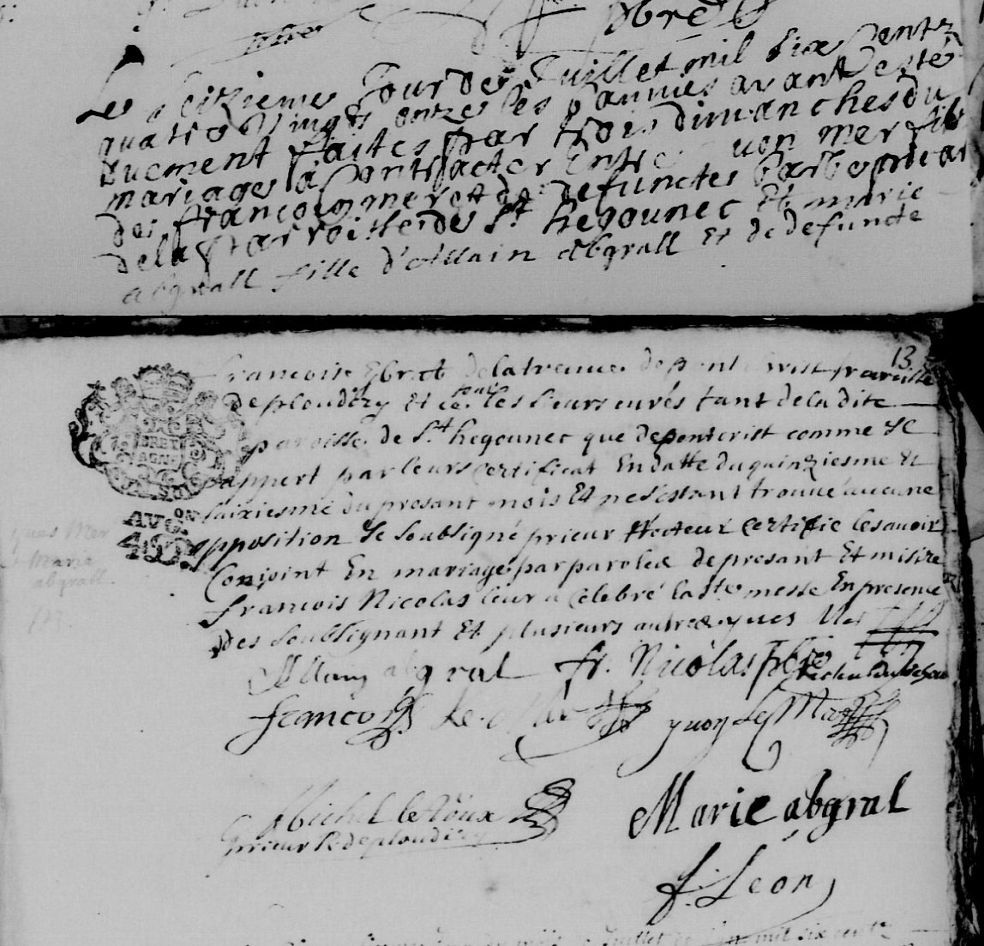 obre
Le seiziemes Jour de Juillet mil six Cents
quatre Vingts onze les bannies avant esté
duement faites par trois dimanches du
mariage a Contracter Entre yuon mer fils
de françois mer et de defuncte barbe
de la parroisse de St hegounec Et marie
abgrall fille d'Allain abgrall Et de defuncte
13
francoise Ebrel de la treuve de pont Crist parroisse
de ploudiry et les sieurs curés tant de la dite
paroisse de St hegounec que de pontcrist comme Il
appert par leurs certificat En datte du quinziesme &
saixiesme du presant mois Et ne s'estant trouvé aucune
opposition Je soubsigné prieur Recteur certifie les avoir
Conjoint En mariage par paroles de presant Et misire
francois Nicolas leur a celebré la Ste messe En presence
des soubsignant Et plusieurs autres yues Mer
BRET
AGNE
AVG.ON
yues Mer
Marie
abgrall
Allain abgral fr. Nicolas pbre
francois Le Mer yuon Le Mer
Michel le Roux Marie abgral
prieur R de ploudiry
f. Leon
mil six cent